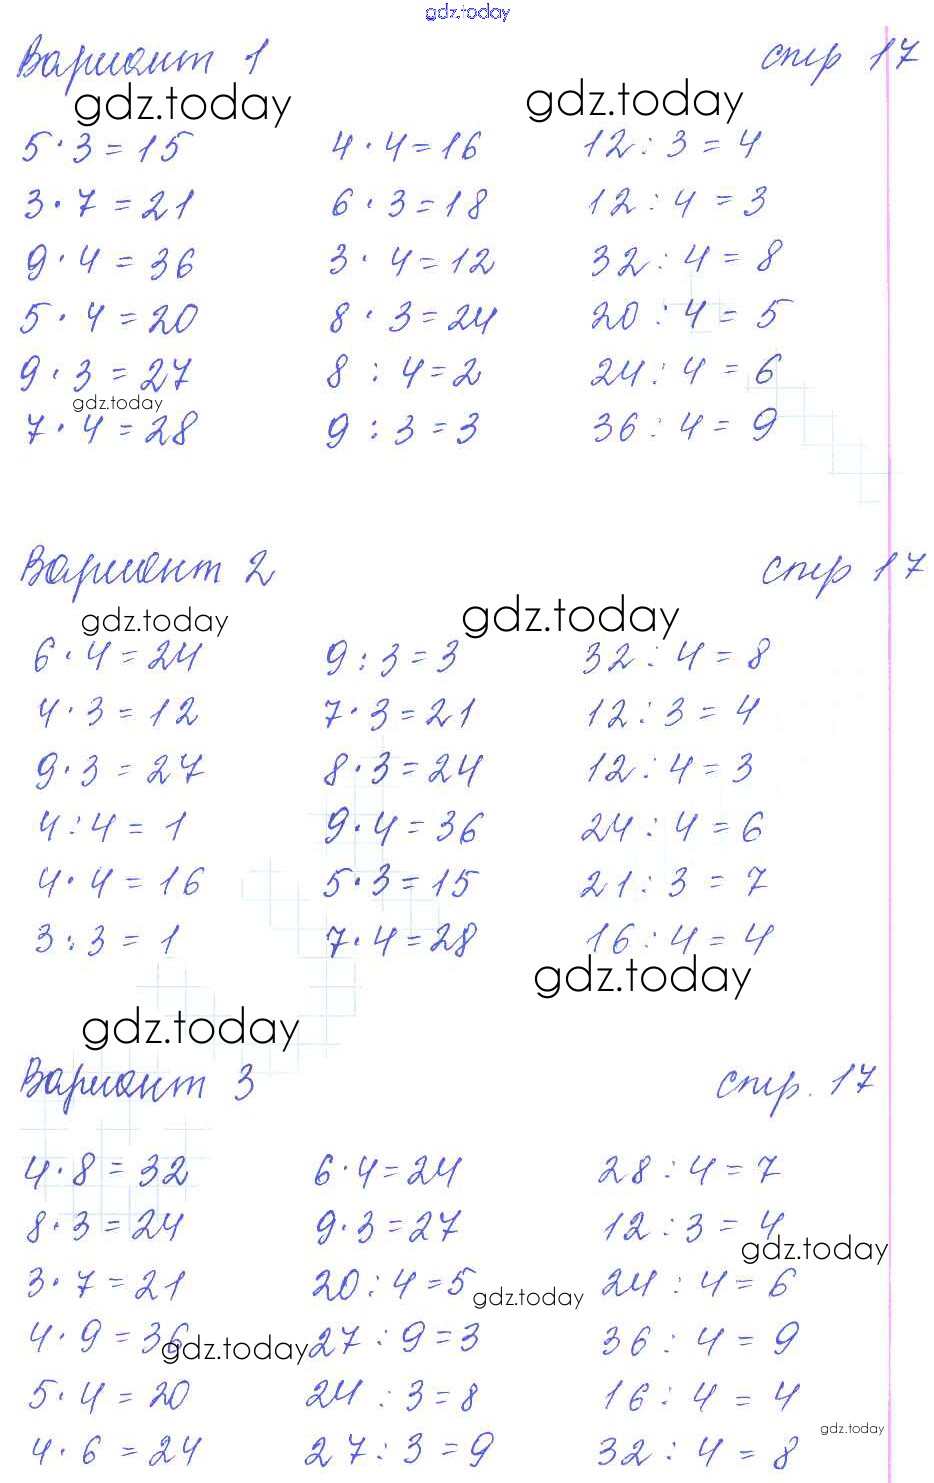 gdz.today
Вариант 1 стр 17
gdz.today gdz.today
5·3=15 4·4=16 12:3=4
3·7=21 6·3=18 12:4=3
9·4=36 3·4=12 32:4=8
5·4=20 8·3=24 20:4=5
9·3=27 8:4=2 24:4=6
gdz.today
7·4=28 9:3=3 36:4=9
Вариант 2 стр 17
gdz.today gdz.today
6·4=24 9:3=3 32:4=8
4·3=12 7·3=21 12:3=4
9·3=27 8·3=24 12:4=3
4:4=1 9·4=36 24:4=6
4·4=16 5·3=15 21:3=7
3:3=1 7·4=28 16:4=4
gdz.today
gdz.today
Вариант 3 стр. 17
4·8=32 6·4=24 28:4=7
8·3=24 9·3=27 12:3=4
gdz.today
3·7=21 20:4=5 24:4=6
gdz.today
4·9=36 27:9=3 36:4=9
gdz.today
5·4=20 24:3=8 16:4=4
gdz.today
4·6=24 27:3=9 32:4=8